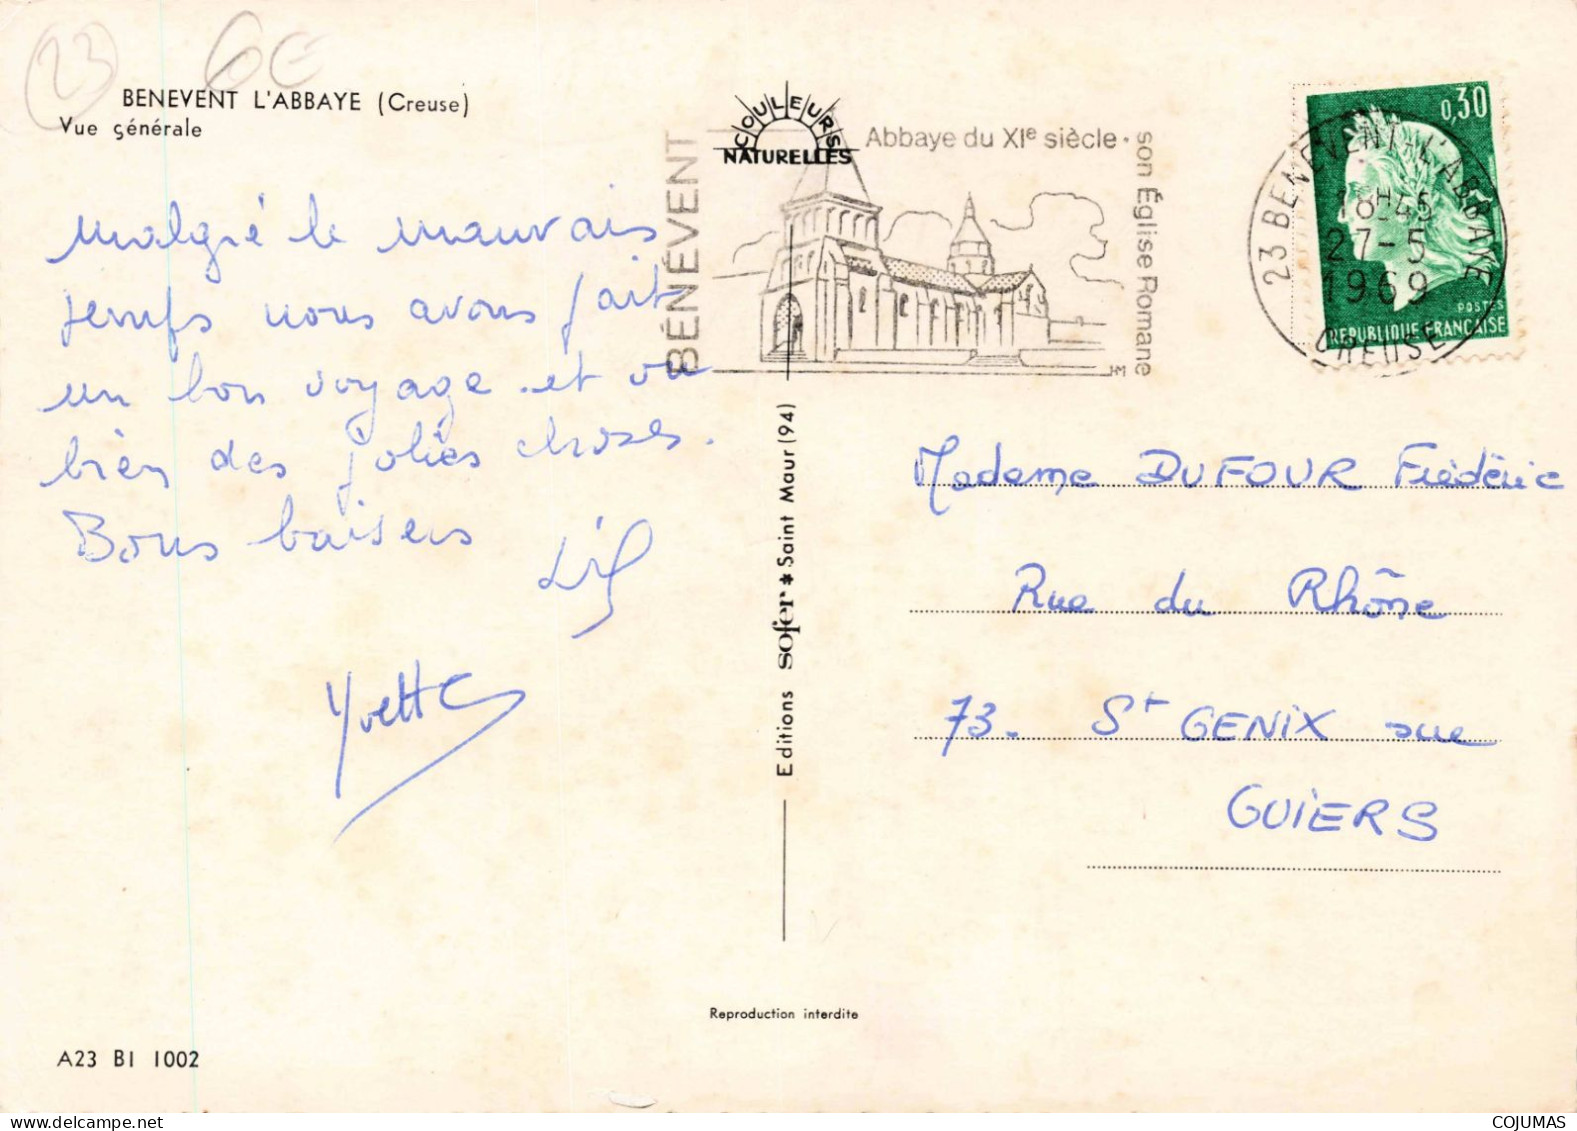 23
6€
BENEVENT L'ABBAYE (Creuse)
Vue générale
Malgré le mauvais
temps nous avons fait
un bon voyage et vu
bien des jolies choses.
Bons baisers
Yvette
A23 BI 1002
COULEURS
NATURELLES
BÉNÉVENT
Abbaye du XIe siècle.
son Église Romane
HM
Editions sofer * Saint Maur (94)
Reproduction interdite
0,30
POSTES
REPUBLIQUE FRANÇAISE
23 BENEVENT-L'ABBAYE
18H45
27-5
1969
CREUSE
Madame DUFOUR Frédéric
Rue du Rhône
73. St GENIX sur
GUIERS
COJUMAS